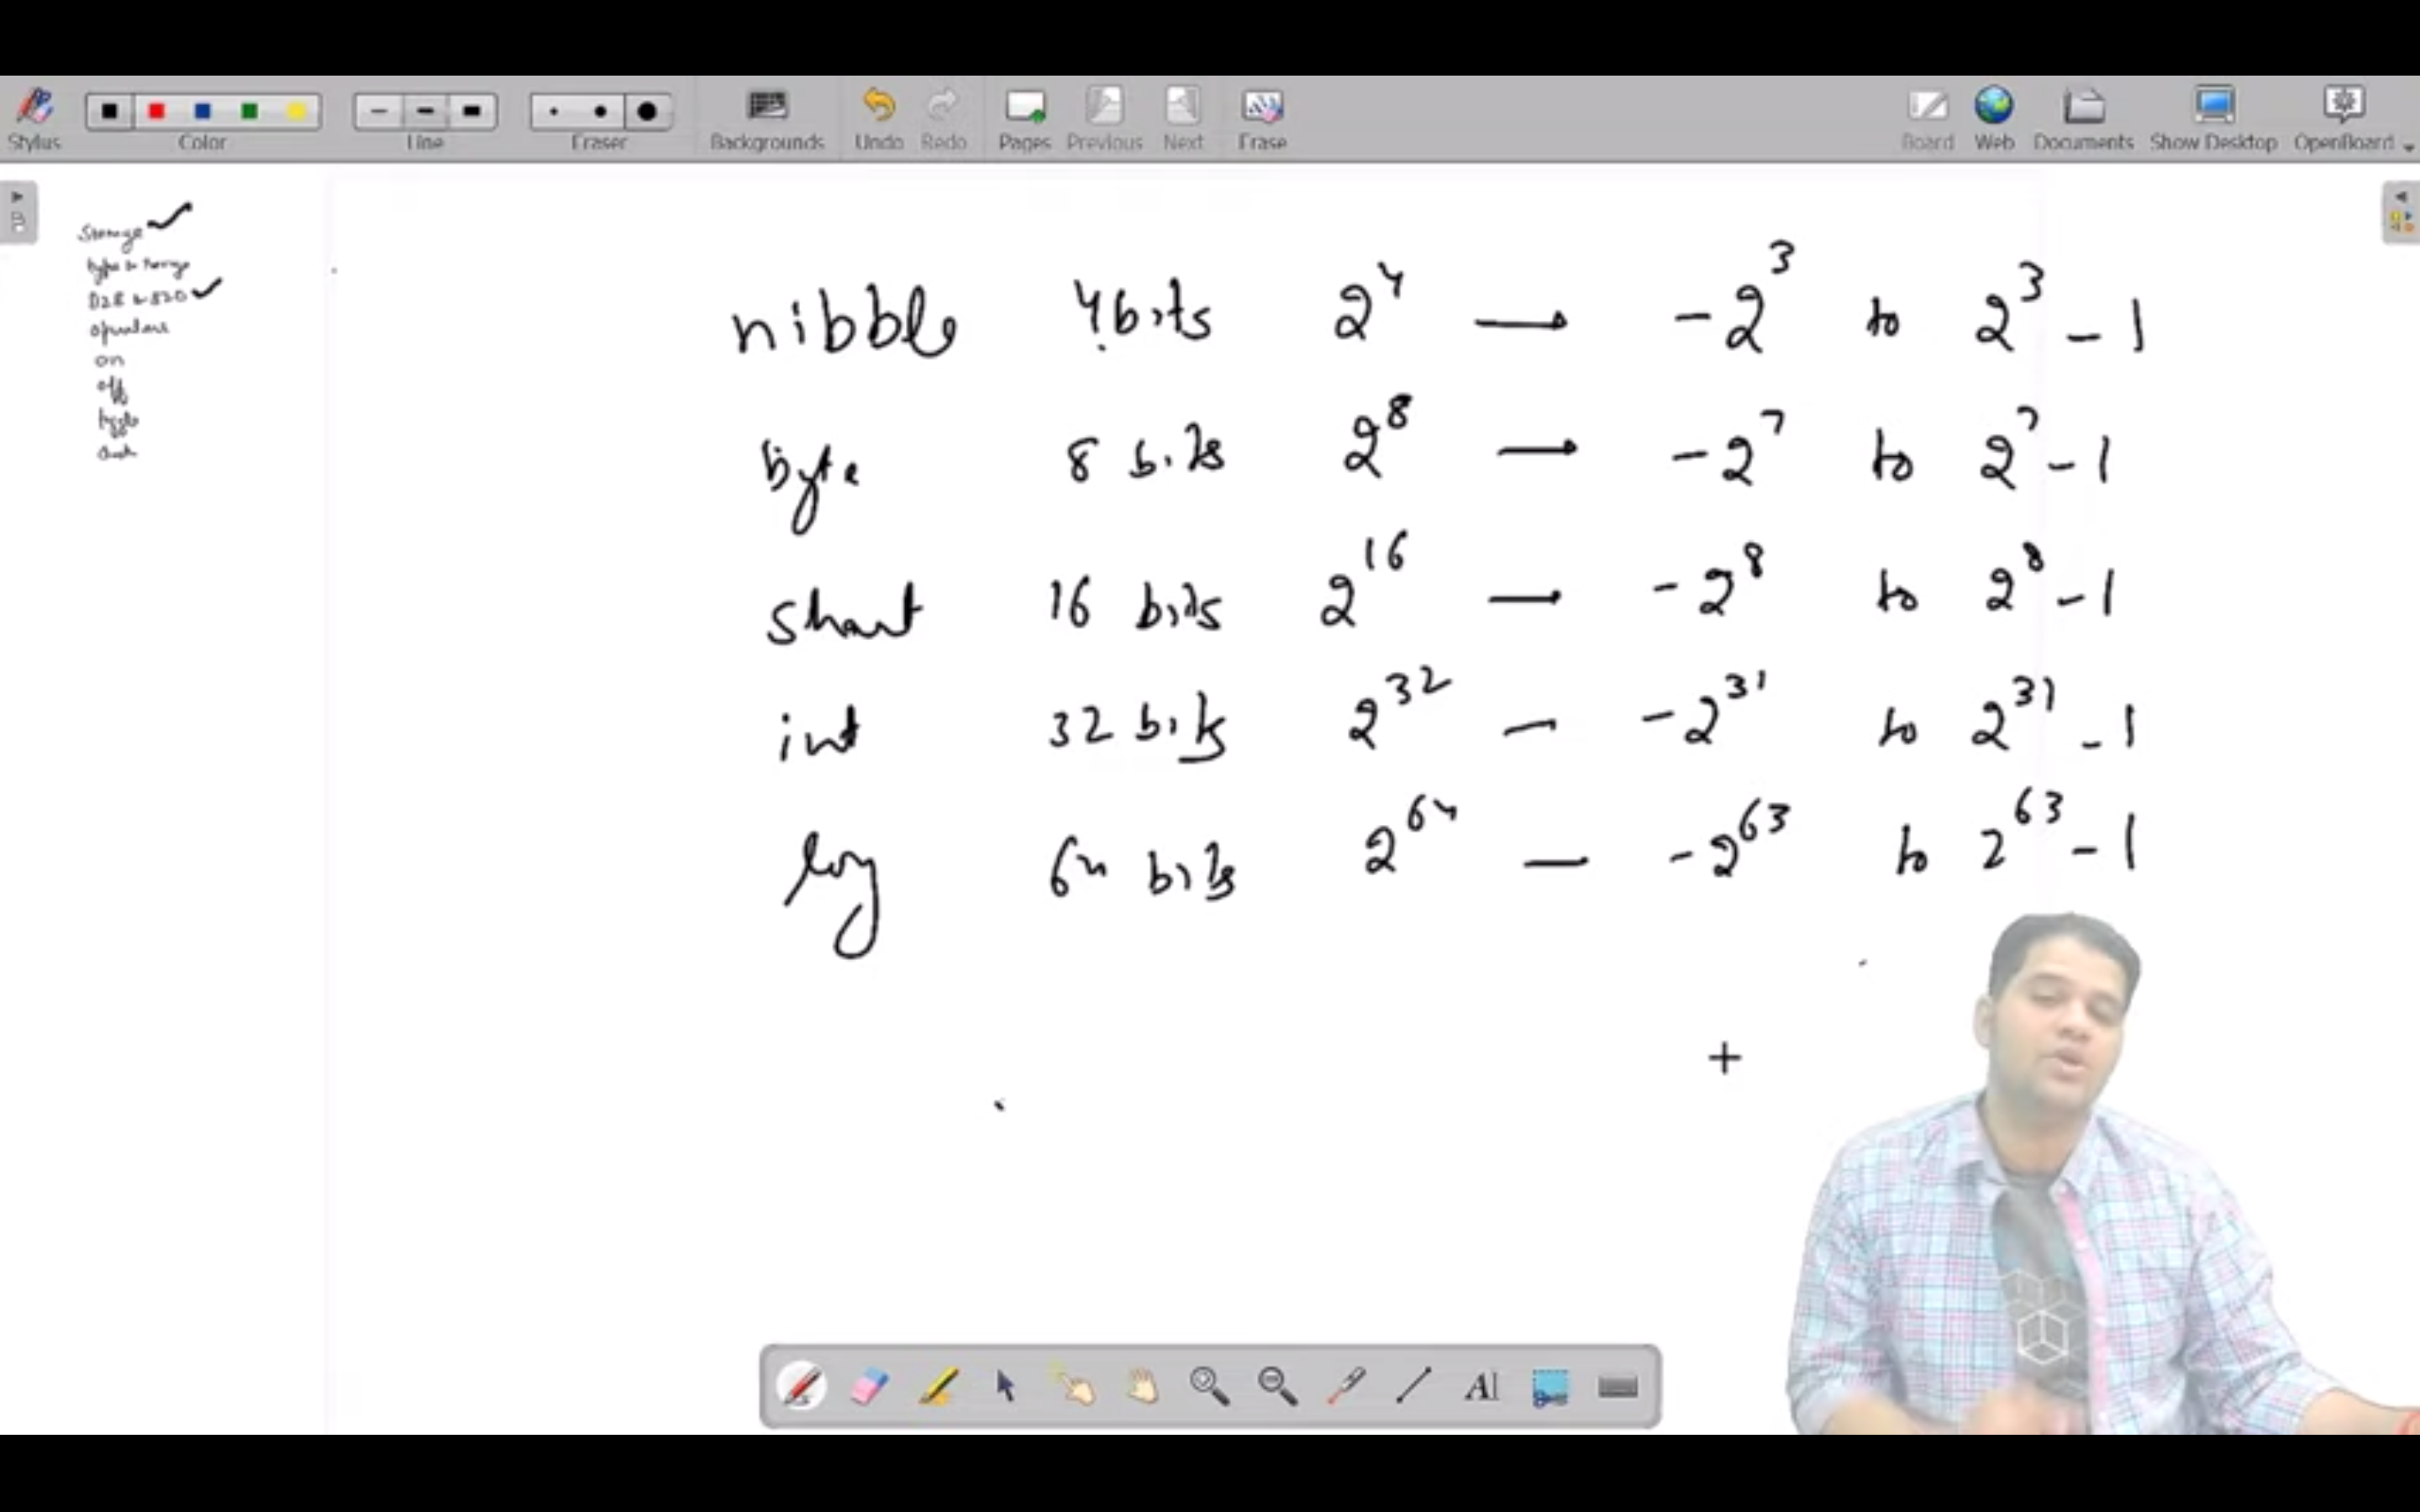 Stylus Color Line Eraser Backgrounds Undo Redo Pages Previous Next Erase Board Web Documents Show Desktop OpenBoard
Storage ✓
type & range
D2B & B2D ✓
operators
on
off
toggle
check
nibble 4 bits 2⁴ → -2³ to 2³ - 1
byte 8 bits 2⁸ → -2⁷ to 2⁷ - 1
short 16 bits 2¹⁶ — -2⁸ to 2⁸ - 1
int 32 bits 2³² — -2³¹ to 2³¹ - 1
long 64 bits 2⁶⁴ — -2⁶³ to 2⁶³ - 1
AI